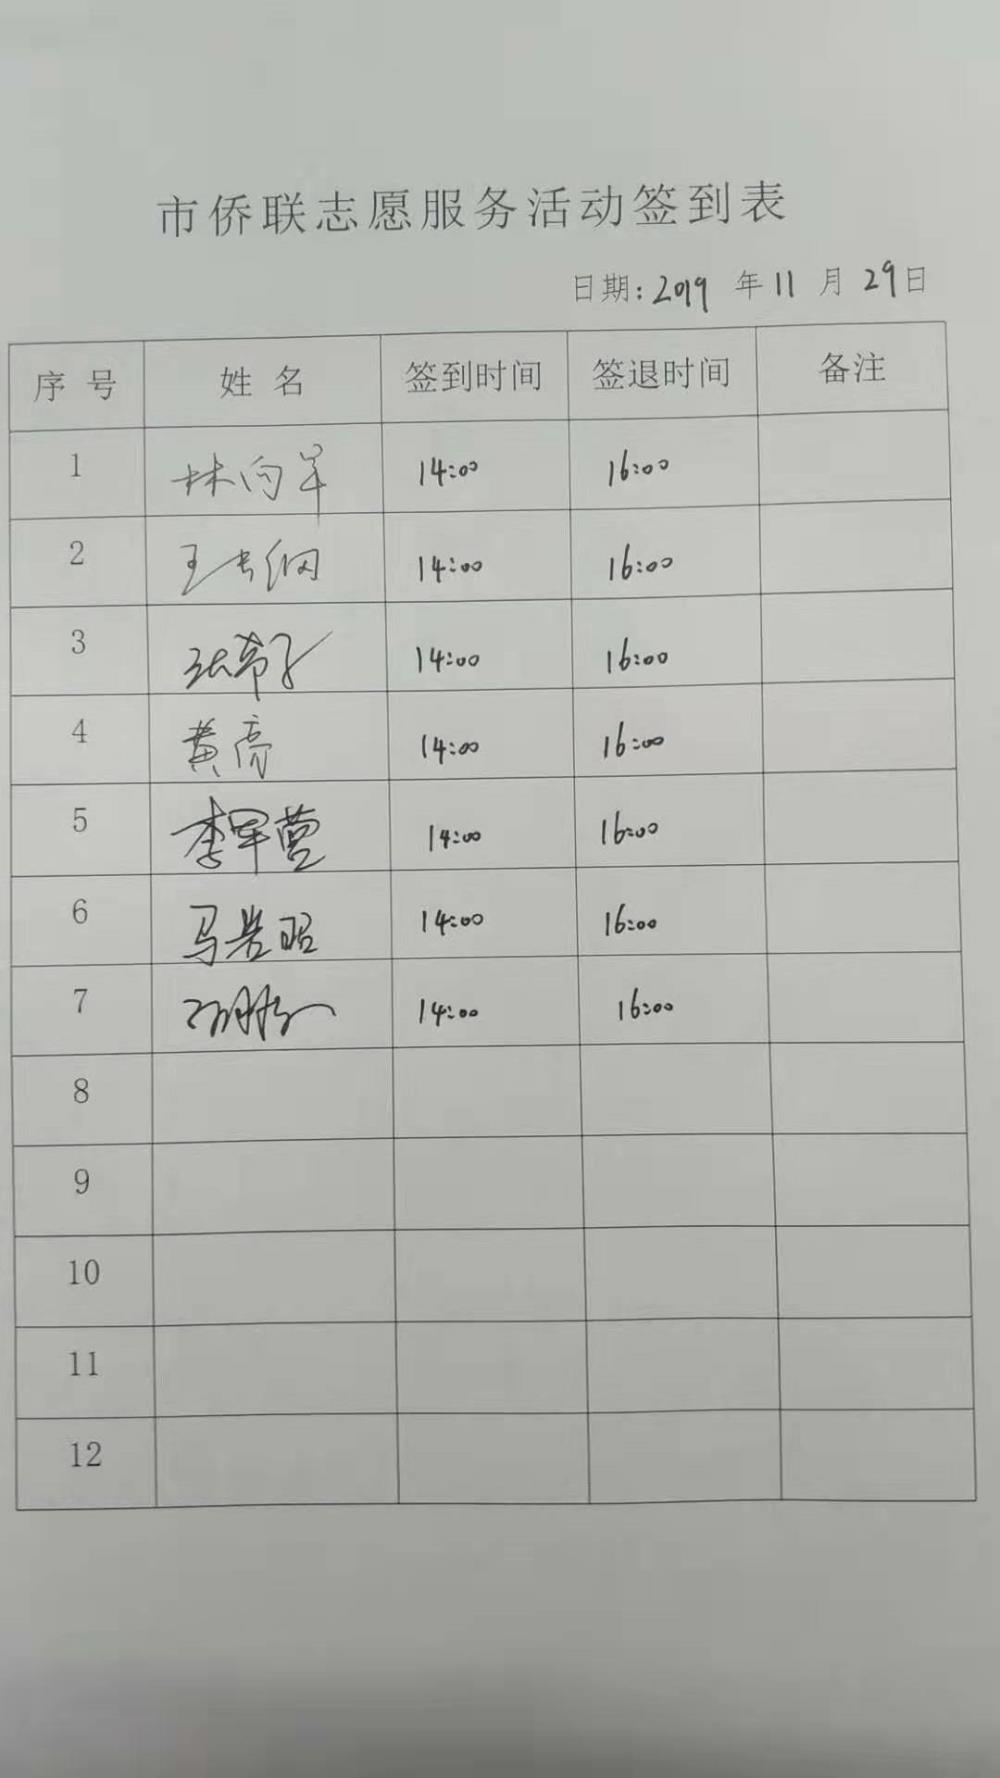 市侨联志愿服务活动签到表
日期: 2019 年 11 月 29 日
序号 姓名 签到时间 签退时间 备注
1 林向羊 14:00 16:00
2 王长纲 14:00 16:00
3 14:00 16:00
4 黄亮 14:00 16:00
5 李军营 14:00 16:00
6 马岩昭 14:00 16:00
7 14:00 16:00
8
9
10
11
12